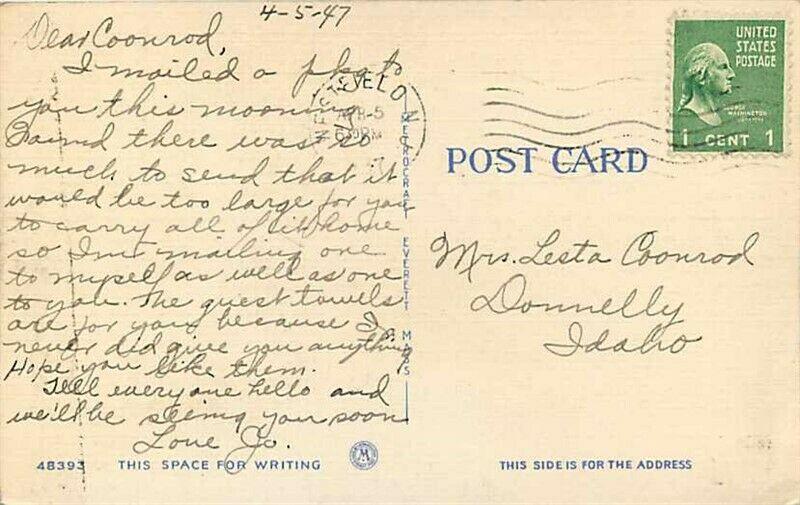 4-5-47
Dear Coonrod,
I mailed a pkg to
you this morning.
Found there was so
much to send that it
would be too large for you
to carry all of it home
so I'm mailing one
to myself as well as one
to you. The guest towels
are for you because I
never did give you anything
Hope you like them.
Tell everyone hello and
we'll be seeing you soon
Love Jo.
48393 THIS SPACE FOR WRITING
METROCRAFT EVERETT MASS
VELON
APR-5
PM
UNITED
STATES
POSTAGE
GEORGE
WASHINGTON
1 CENT 1
POST CARD
Mrs. Lesta Coonrod
Donnelly
Idaho
M
THIS SIDE IS FOR THE ADDRESS